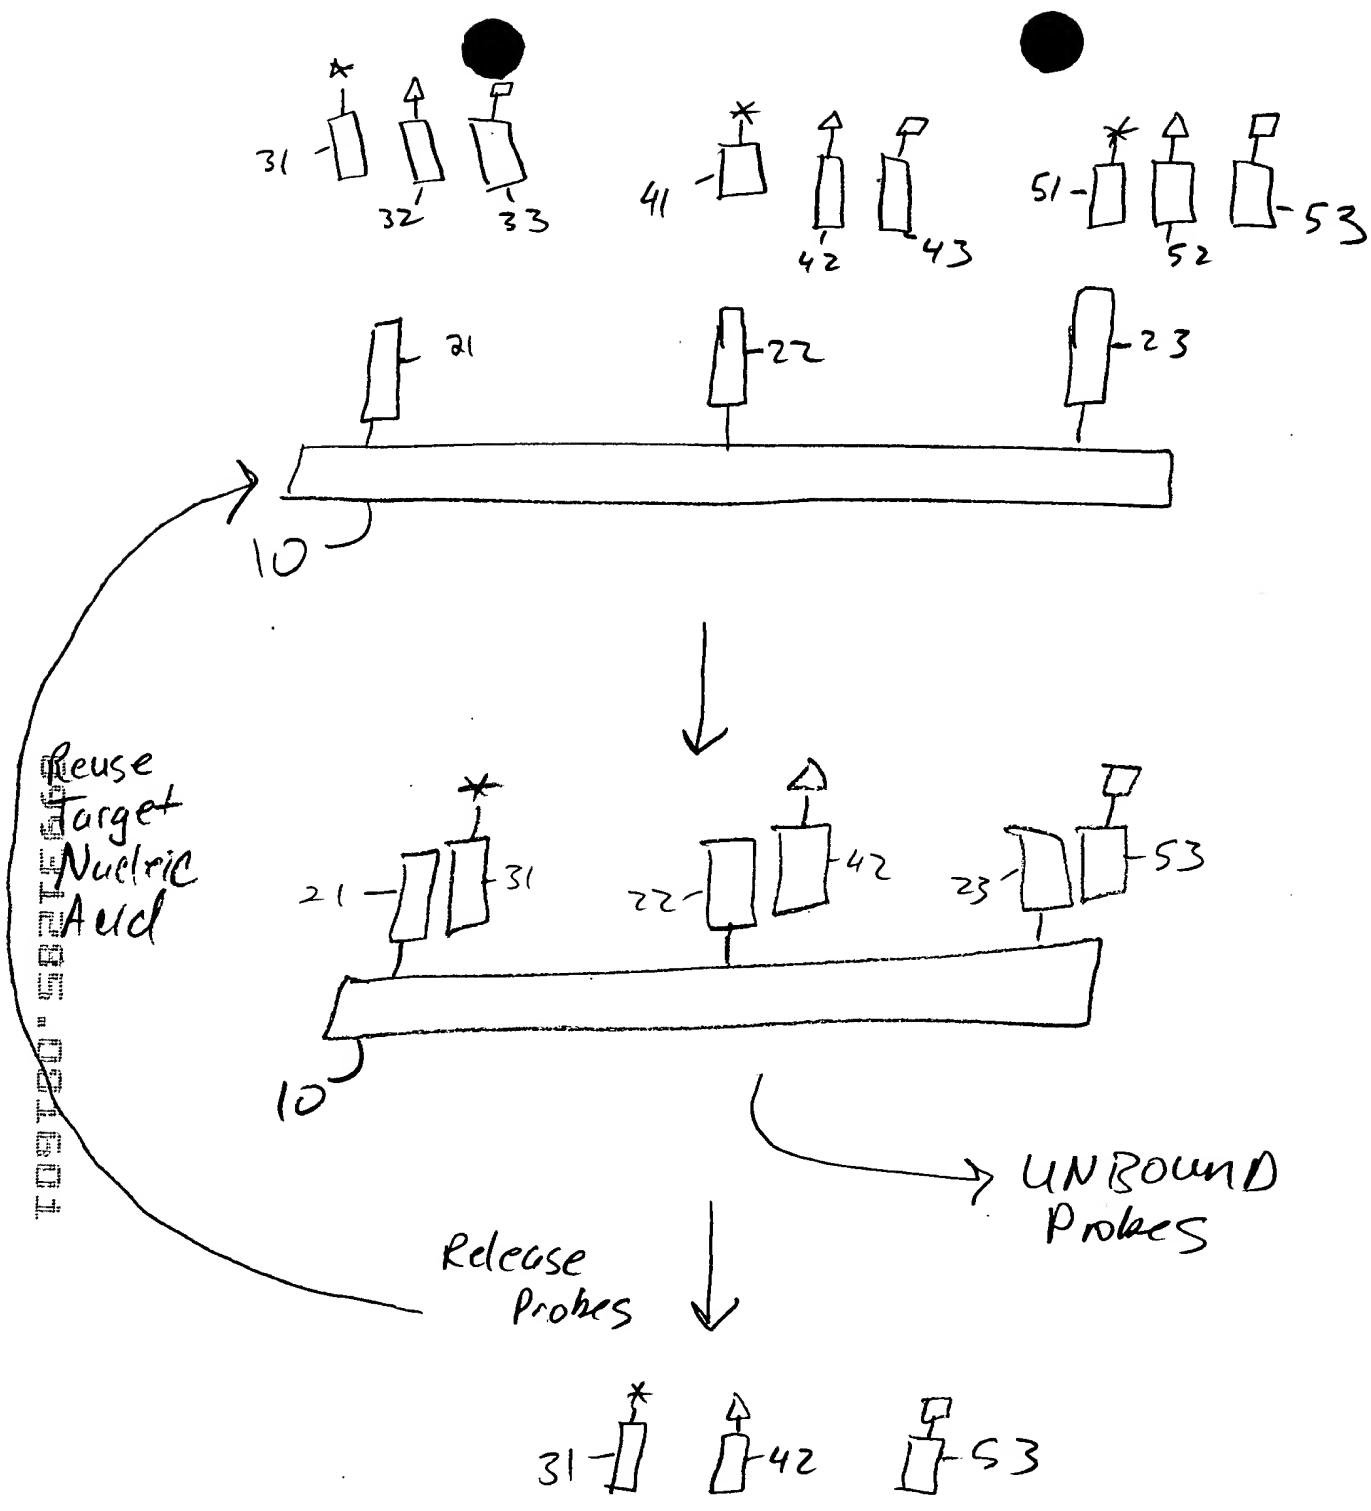 31
32
33
41
42
43
51
52
53
21
22
23
10
Reuse
Target
Nucleic
Acid
21
31
22
42
23
53
10
UNBOUND
Probes
Release
Probes
31
42
53